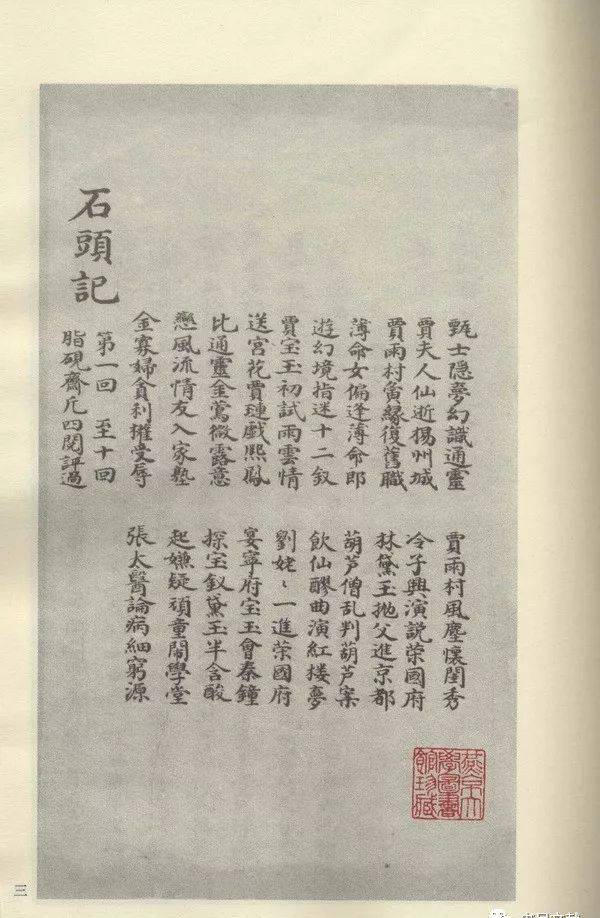 甄士隐夢幻識通靈 賈雨村風塵懷閨秀
賈夫人仙逝揚州城 冷子興演説荣國府
賈雨村夤縁復舊職 林黛玉抛父進京都
薄命女偏逢薄命郎 葫芦僧乱判葫芦案
遊幻境指迷十二釵 飲仙醪曲演紅楼夢
賈宝玉初試雨雲情 劉姥〻一進荣國府
送宮花賈璉戲熙鳳 宴寧府宝玉會秦鐘
比通靈金鶯微露意 探宝釵黛玉半含酸
戀風流情友入家塾 起嫌疑頑童鬧學堂
金寡婦貪利權受辱 張太醫論病細窮源
第一回 至十回
脂硯齋凢四閱評過
石頭記
燕京大
學圖書
館珍藏
三